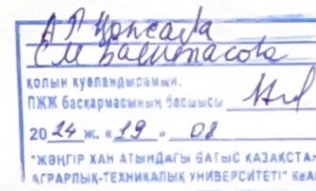 қолын куәландырамын.
ПЖЖ басқармасының басшысы
2024 ж. «19» 08
"ЖӘҢГІР ХАН АТЫНДАҒЫ БАТЫС ҚАЗАҚСТА
АГРАРЛЫҚ-ТЕХНИКАЛЫҚ УНИВЕРСИТЕТІ" КеА